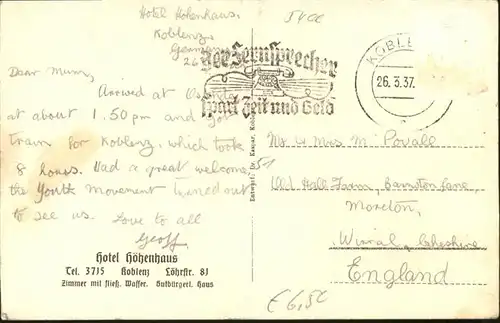 Hotel Hohenhaus,
Koblenz,
Germany
26
Dear Mum,
Arrived at
at about 1.50 pm and got
train for Koblenz, which took
8 hours. Had a great welcome,
the Youth movement turned out
to see us. Love to all
Geoff.
Hotel Höhenhaus
Tel. 3715 Koblenz Löhrstr. 81
Zimmer mit fließ. Wasser. Gutbürgerl. Haus
5400
Der Fernsprecher
spart Zeit und Geld
KOBLE
26.3.37.
351
Mr & Mrs M Povall
Old Hall Farm, Barnston Lane,
Moreton,
Wirral, Cheshire
England
€ 6,50